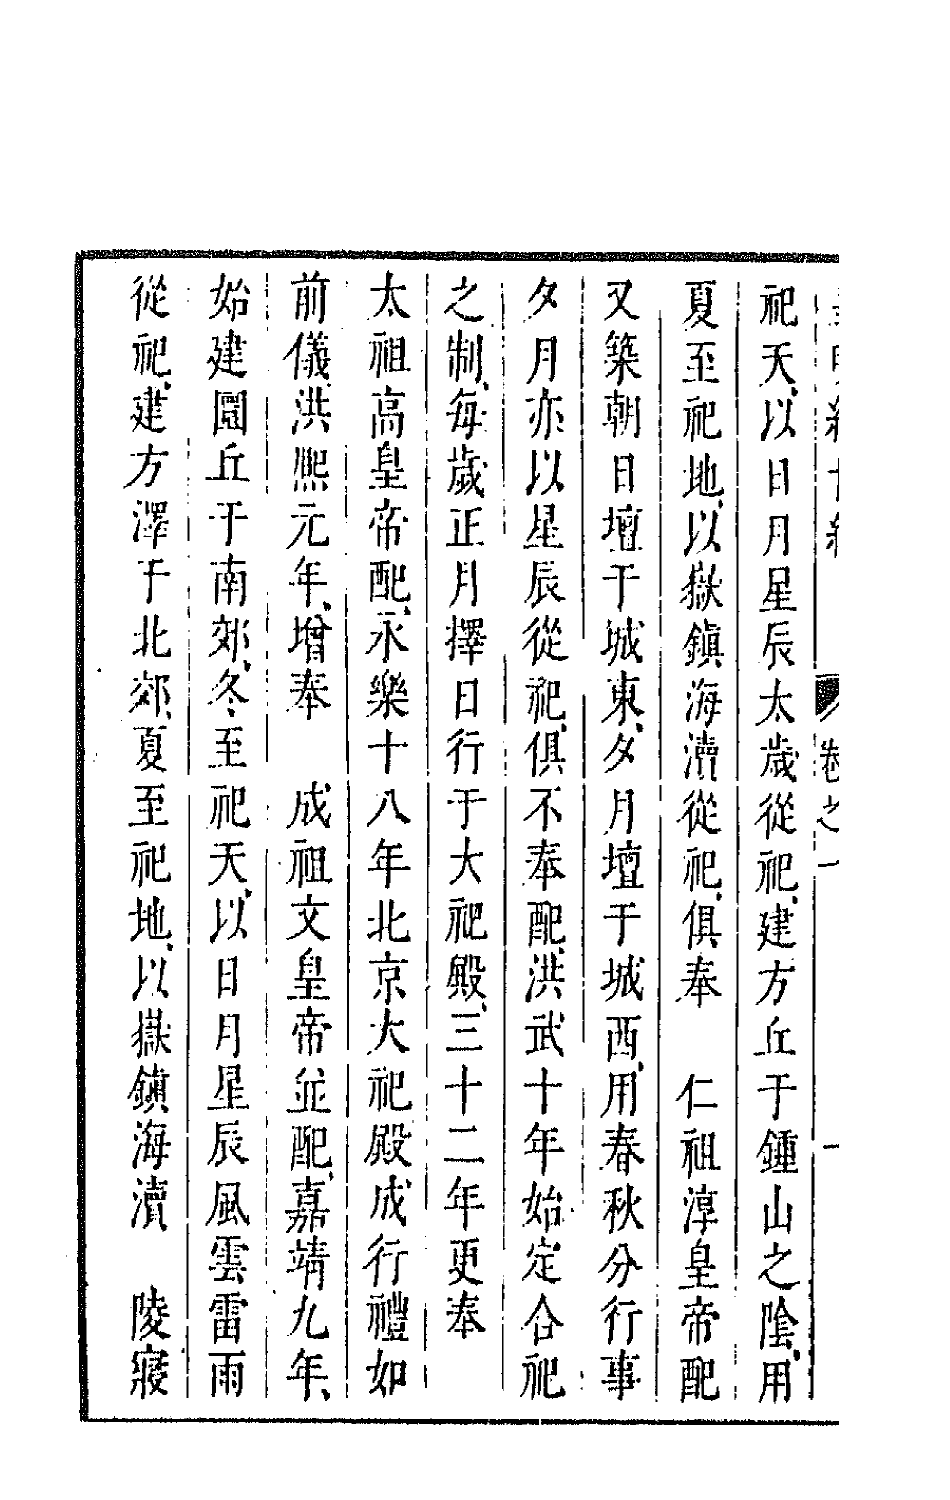 祀天、以日月星辰太歲從祀、建方丘于鍾山之陰、用
夏至祀地、以嶽鎭海瀆從祀、俱奉　仁祖淳皇帝配
又築朝日壇于城東、夕月壇于城西、用春秋分行事
夕月亦以星辰從祀、俱不奉配、洪武十年始定合祀
之制、每歲正月擇日行于大祀殿、三十二年更奉
太祖高皇帝配、永樂十八年北京大祀殿成行禮如
前儀、洪熙元年、增奉　成祖文皇帝並配、嘉靖九年、
始建圜丘于南郊、冬至祀天、以日月星辰風雲雷雨
從祀、建方澤于北郊、夏至祀地、以嶽鎭海瀆　陵寢
卷之一
一